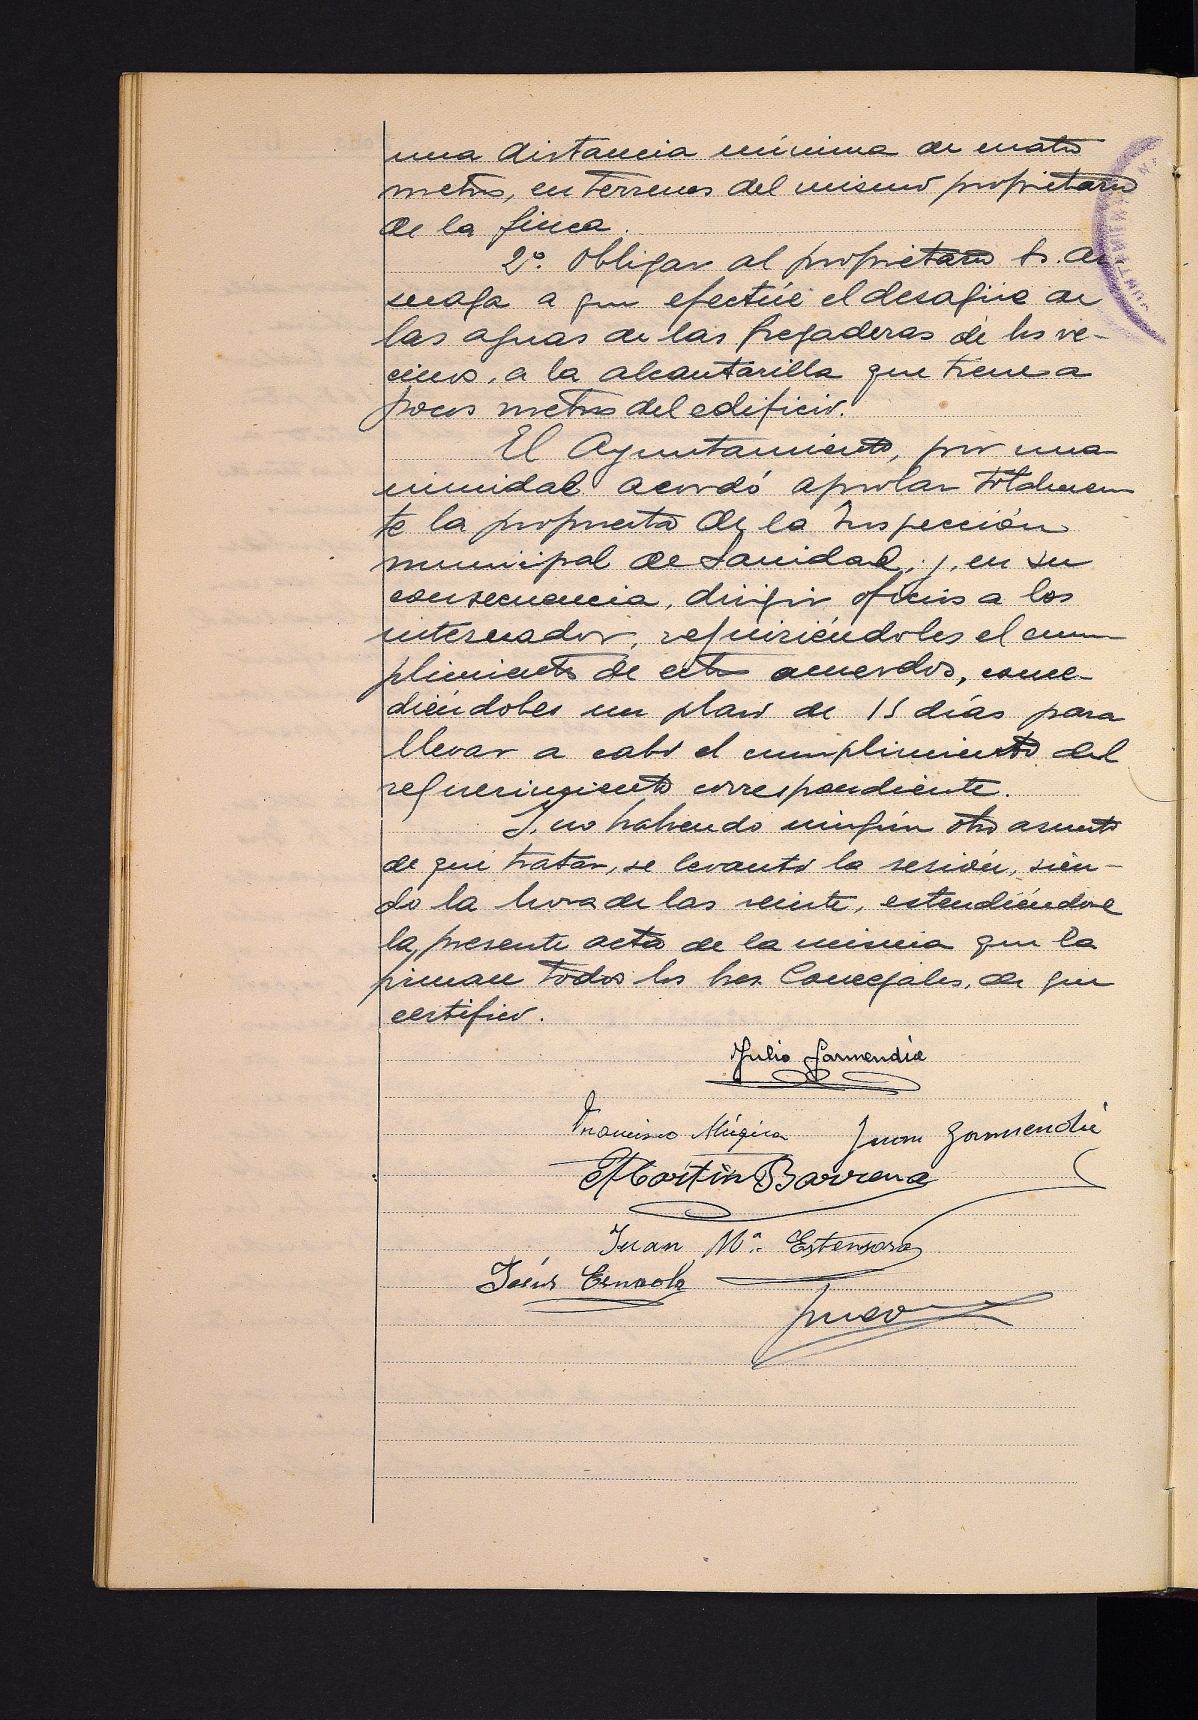 una distancia mínima de cuatro
metros, en terrenos del mismo propietario
de la finca.
2º. Obligar al propietario Sr. Ar
seaga a que efectúe el desagüe de
las aguas de las fregaderas de los ve-
cinos, a la alcantarilla que tiene a
pocos metros del edificio.
El Ayuntamiento, por una
nimidad acordó aprobar totalmen
te la propuesta de la Inspección
municipal de Sanidad, y, en su
consecuencia, dirigir oficios a los
interesados, requiriéndoles el cum
plimiento de estos acuerdos, conce-
diéndoles un plazo de 15 días para
llevar a cabo el cumplimiento del
requerimiento correspondiente.
Y, no habiendo ningún otro asunto
de que tratar, se levantó la sesión, sien-
do la hora de las veinte, extendiéndose
la presente acta de la misma que la
firman todos los Sres. Concejales, de que
certifico.
Julio Garmendia
Francisco Múgica Juan Garmendia
Martín Barrena
Juan Mª. Estensoro
Jesús Ernaola
JUNTAMIENT